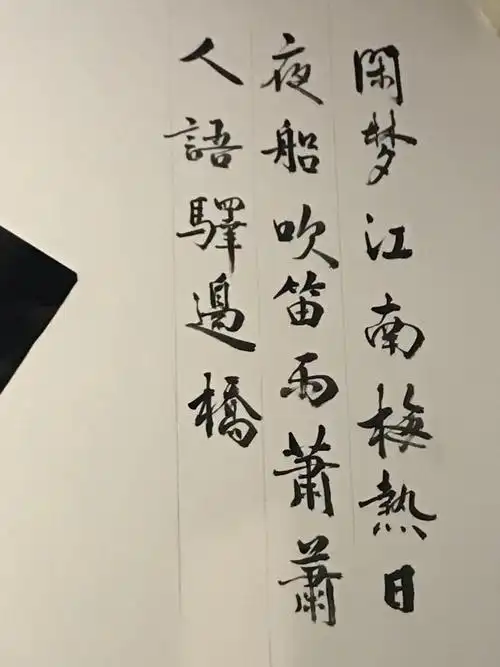 閑梦江南梅熱日
夜船吹笛雨蕭蕭
人語驛邊橋